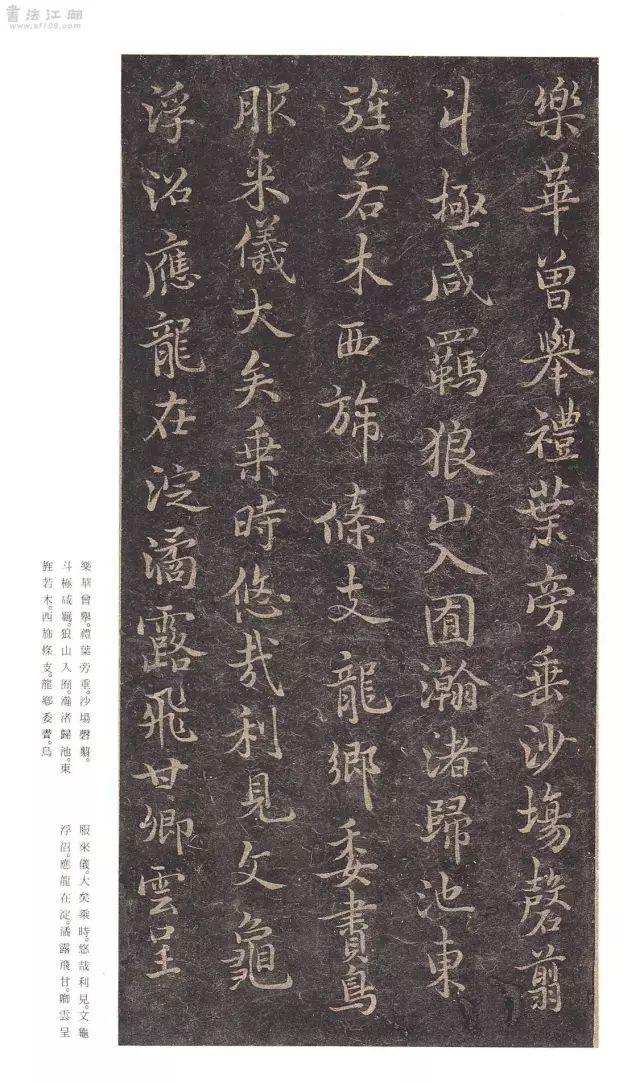 書法江湖
www.sf108.com
樂華曾舉禮葉旁垂沙塲磬翦
斗極咸羈狼山入囿瀚渚歸池東
旌若木西旆條支龍鄉委賮鳥
服来儀大矣乗時悠哉利見文龜
浮沼應龍在淀潏露飛甘卿雲呈
樂華曾舉。禮葉旁垂。沙場磬翦。
斗極咸羈。狼山入囿。瀚渚歸池。東
旌若木。西旆條支。龍鄉委賮。鳥
服來儀。大矣乘時。悠哉利見。文龜
浮沼。應龍在淀。潏露飛甘。卿雲呈